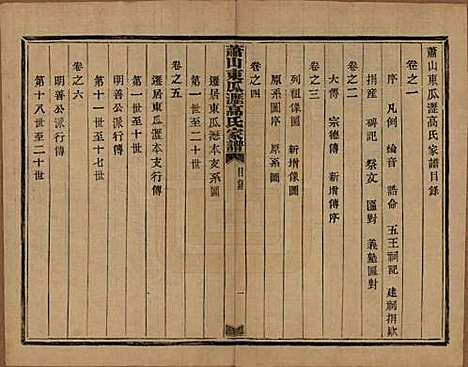 蕭山東瓜瀝高氏家譜目錄
卷之一
序 凡例 綸音 誥命 五王祠記 建祠捐欵
捐產 碑記 祭文 匾對 義塾匾對
卷之二
大傳 宗德傳 新增傳序
卷之三
列祖像圖 新增像圖
卷之四
原系圖 原系序
蕭山東瓜瀝高氏家譜
目錄
一
遷居東瓜瀝本支系圖
第一世至二十世
卷之五
遷居東瓜瀝本支行傳
第一世至二十世
明善公派行傳
第十一世至十七世
卷之六
明善公派行傳
第十八世至二十世